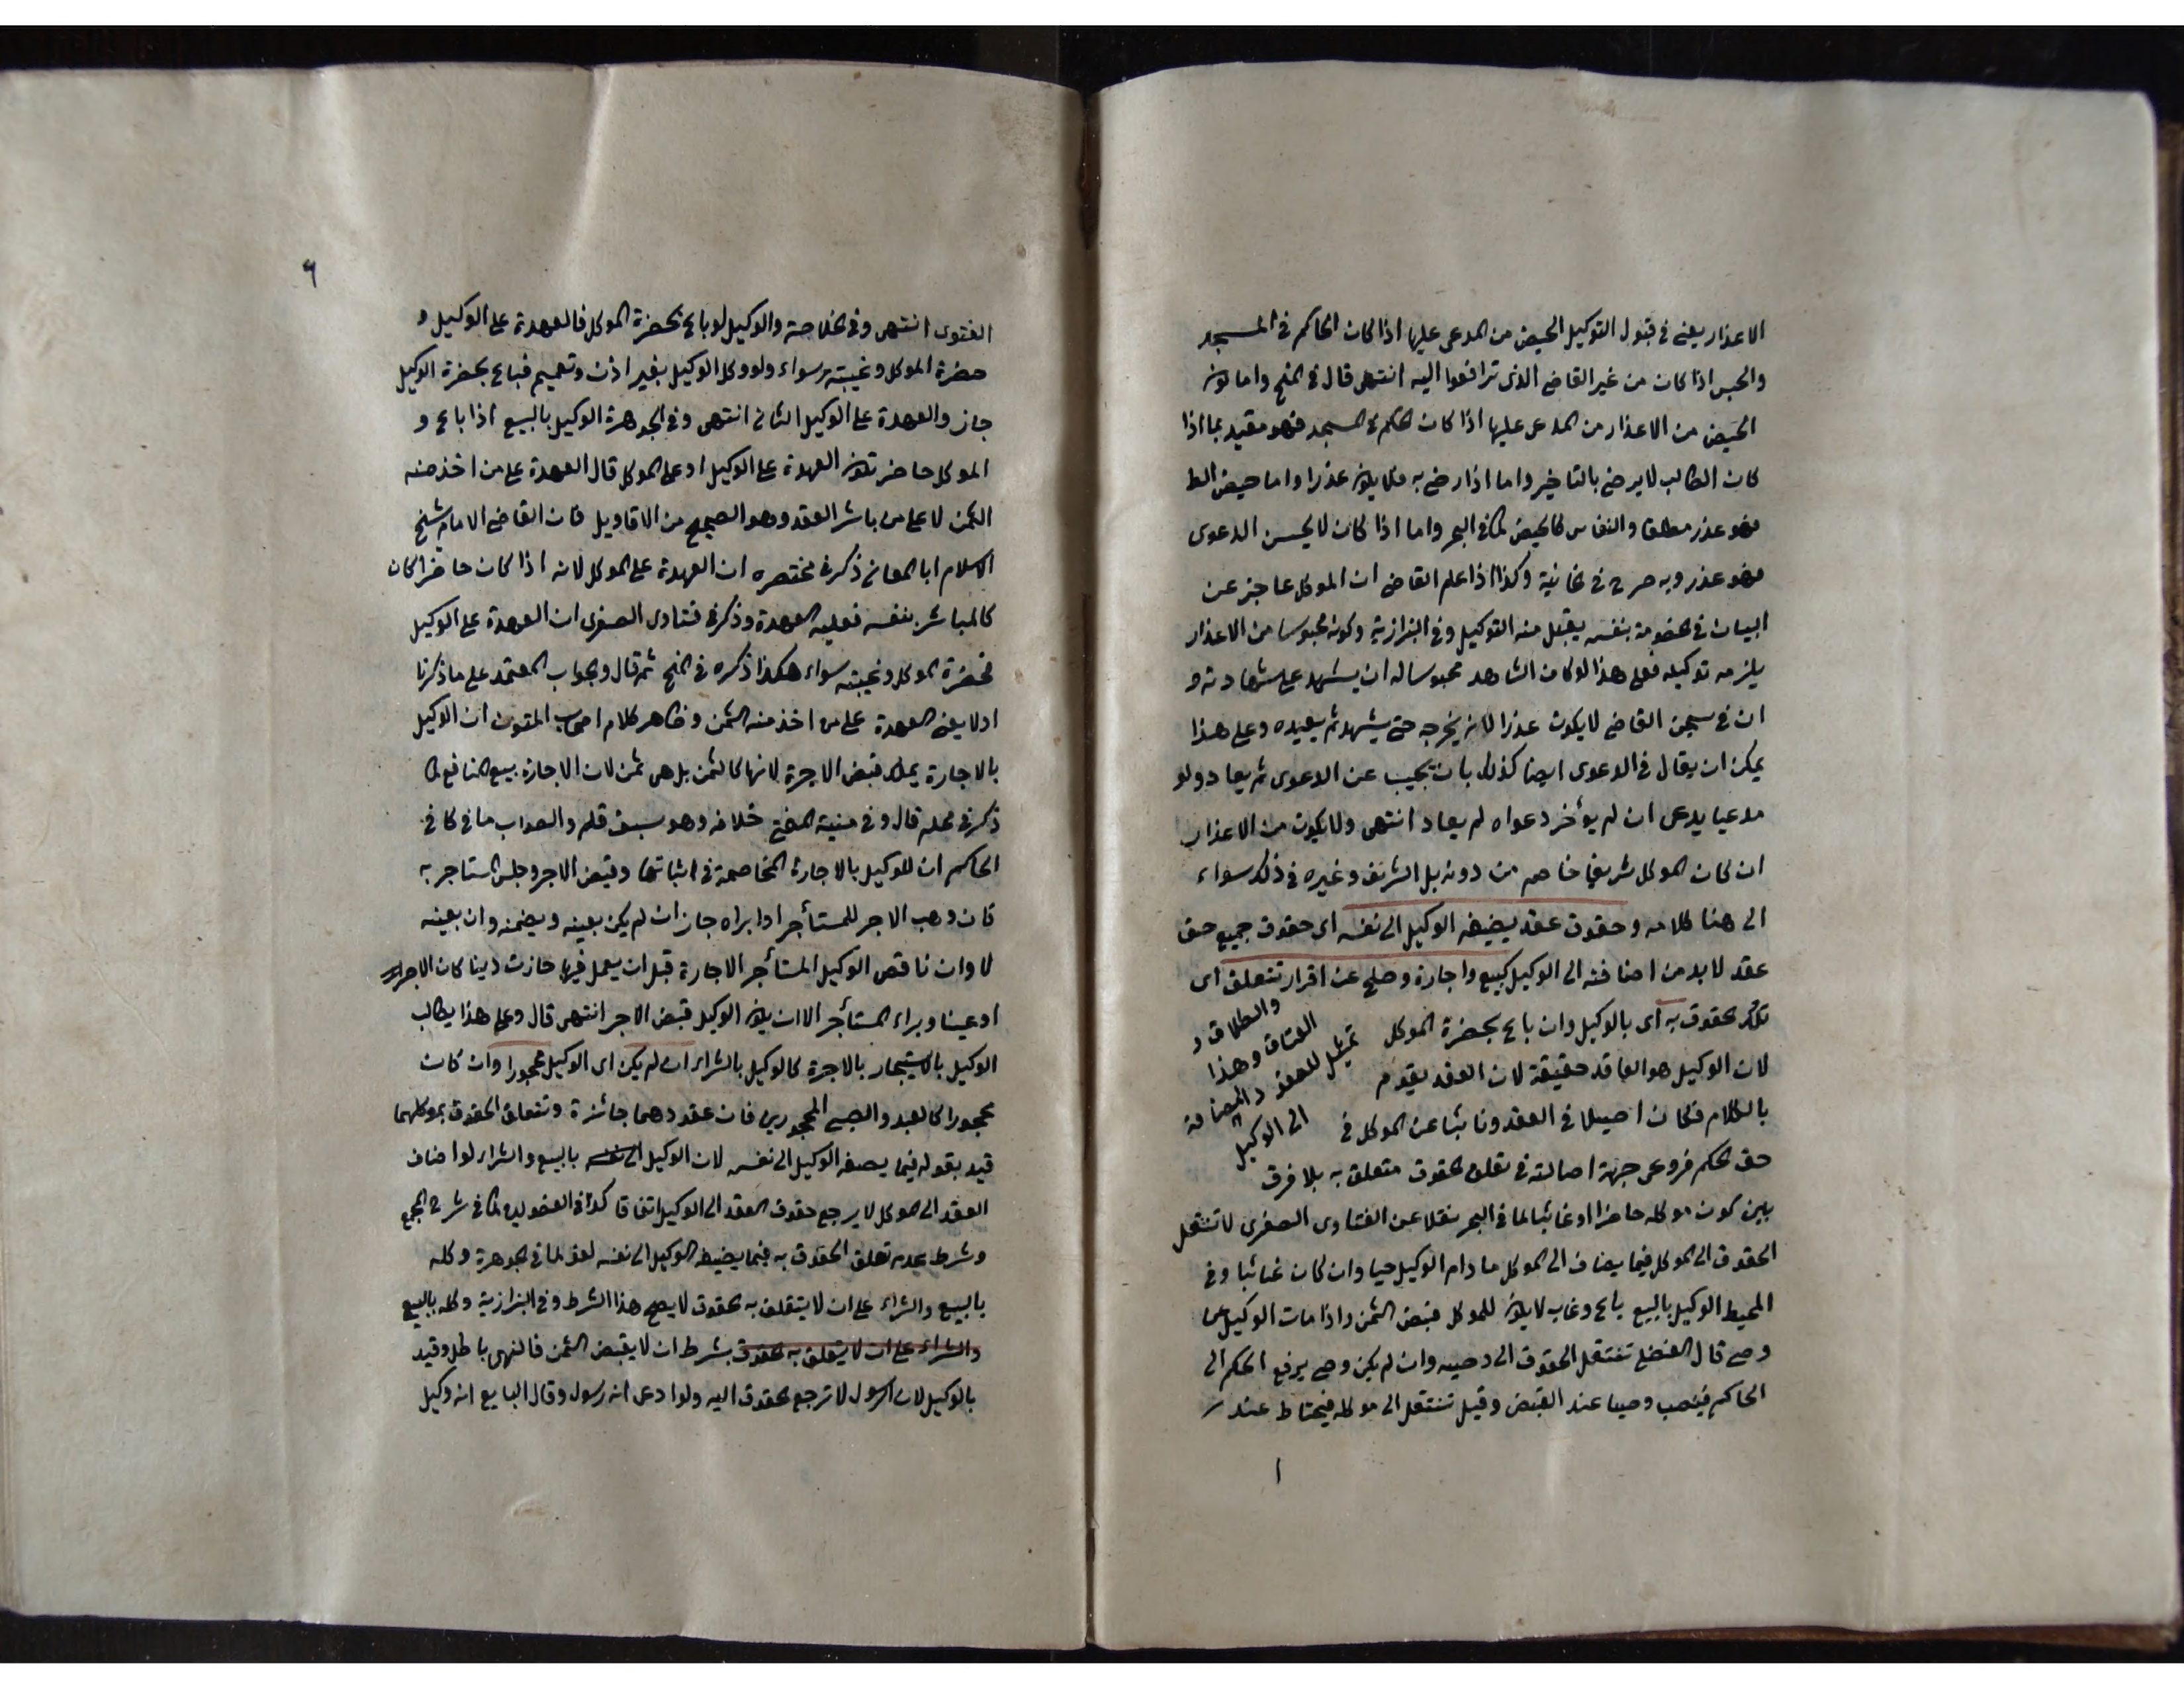 الاعذار يعنى فى قبول التوكيل الحيض من المدعى عليها اذا كان الحاكم فى المسجد
والحبس اذا كان من غير القاضى الذى ترافعوا اليه انتهى قال فى المنح واما كون
الحيض من الاعذار من المدعى عليها اذا كان الحكم فى المسجد فهو مقيد بما اذا
كان الطالب لا يرضى بالتاخير واما اذا رضى به فلا يكون عذرا واما حيض الط
فهو عذر مطلقا والنفاس كالحيض كما فى البحر واما اذا كان لا يحسن الدعوى
فهو عذر وبه صرح فى الخانية وكذا اذا علم القاضى ان الموكل عاجز عن
البيان فى الخصومة بنفسه يقبل منه التوكيل وفى البزازية وكونه محبوسا من الاعذار
يلزمه توكيله فعلى هذا لو كان الشاهد محبوسا له ان يشهد على شهادته و
ان فى سجن القاضى لا يكون عذرا لانه يخرجه حتى يشهد ثم يعيده وعلى هذا
يمكن ان يقال فى الدعوى ايضا كذلك بان يجيب عن الدعوى ثم يعاد ولو
مدعيا يدعى ان لم يؤخر دعواه لم يعاد انتهى ولا يكون من الاعذار
ان كان الموكل شريفا خاصم من دونه بل الشريف وغيره فى ذلك سواء
الى هنا كلامه وحقوق عقد يضيفه الوكيل الى نفسه اى حقوق جميع حق
عقد لا بد من اضافته الى الوكيل كبيع واجارة وصلح عن اقرار تتعلق اى
تلك الحقوق به اى بالوكيل وان باع بحضرة الموكل
لان الوكيل هو العاقد حقيقة لان العقد يقوم
بالكلام فكان اصيلا فى العقد ونائبا عن الموكل فى
والطلاق و
العتاق وهذا
تمثيل للعقد والمضافة
الى الوكيل
حق الحكم فروعى جهة اصالته فى تعلق الحقوق متعلق به بلا فرق
بين كون موكله حاضرا او غائبا لما فى البحر نقلا عن الفتاوى الصغرى لا تنتقل
الحقوق الى الموكل فيما يضاف الى الموكل ما دام الوكيل حيا وان كان غائبا وفى
المحيط الوكيل بالبيع باع وغاب لا يكون للموكل قبض الثمن واذا مات الوكيل عن
وصى قال الفضلى تنتقل الحقوق الى وصيه وان لم يكن وصى يرفع الحكم الى
الحاكم فينصب وصيا عند القبض وقيل تنتقل الى موكله فيحتاط عند
٦
الفتوى انتهى وفى الخلاصة والوكيل لو باع بحضرة الموكل فالعهدة على الوكيل و
حضرة الموكل وغيبته سواء ولو وكل الوكيل بغير اذن وتعميم فباع بحضرة الوكيل
جاز والعهدة على الوكيل الثانى انتهى وفى الجوهرة الوكيل بالبيع اذا باع و
الموكل حاضر تكون العهدة على الوكيل او على الموكل قال العهدة على من اخذ منه
الثمن لا على من باشر العقد وهو الصحيح من الاقاويل فان القاضى الامام شيخ
الاسلام ابا المعانى ذكر فى مختصره ان العهدة على الموكل لانه اذا كان حاضرا كان
كالمباشر بنفسه فعليه العهدة وذكر فى فتاوى الصغرى ان العهدة على الوكيل
فحضرة الموكل وغيبته سواء هكذا ذكره فى المنح ثم قال والجواب المعتمد على ما ذكرنا
اولا يعنى العهدة على من اخذ منه الثمن وظاهر كلام اصحاب المتون ان الوكيل
بالاجارة يملك قبض الاجرة لانها كالثمن بل هى ثمن لان الاجارة بيع المنافع كما
ذكر فى محله قال وفى منية المفتى خلافه وهو سبق قلم والصواب ما فى كافى
الحاكم ان للوكيل بالاجارة المخاصمة فى اثباتها وقبض الاجر وحبس المستاجر به
فان وهب الاجر للمستأجر او ابراه جاز ان لم يكن بعينه ويضمنه وان بعينه
لا وان ناقض الوكيل المستأجر الاجارة قبل ان يعمل فيها جازت دينا كان الاجراء
او عينا وبراء المستأجر الا ان يكون الوكيل قبض الاجر انتهى قال وعلى هذا يطالب
الوكيل بالاستيجار بالاجرة كالوكيل بالشراء ان لم يكن اى الوكيل محجورا وان كان
محجورا كالعبد والصبى المحجورين فان عقودهما جائزة وتتعلق الحقوق بموكلهما
قيد بقوله فيما يضفه الوكيل الى نفسه لان الوكيل الى نفسه بالبيع والشراء لو اضاف
العقد الى الموكل لا يرجع حقوق العقد الى الوكيل اتفاقا كما فى شرح المجمع
وشرط عدم تعلق الحقوق به فيما يضيفه الوكيل الى نفسه لغو لما فى الجوهرة وكله
بالبيع والشراء على ان لا يتعلق به الحقوق لا يصح هذا الشرط وفى البزازية وكله بالبيع
والشراء على ان لا يتعلق به الحقوق بشرط ان لا يقبض الثمن فالنهى باطل وقيد
بالوكيل لان الرسول لا ترجع الحقوق اليه ولو ادعى انه رسول وقال البايع انه وكيل